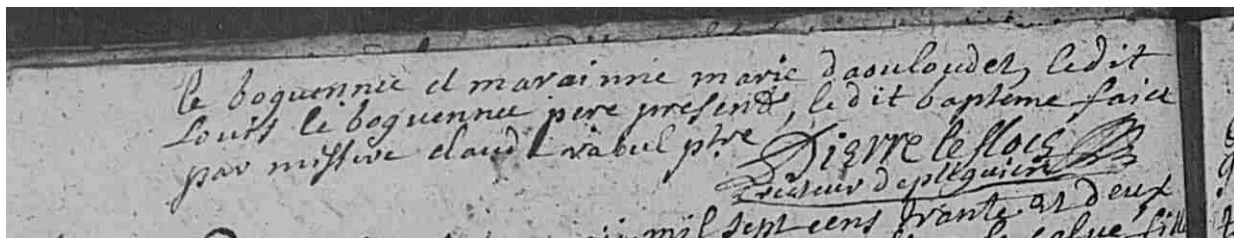 le boquennec et marainne marie daouloudet, ledit
Louis le boquennec pere present, ledit baptéme faict
par missire claude rabul ptre Pierre le floch
recteur de
mil sept cens trante et deux